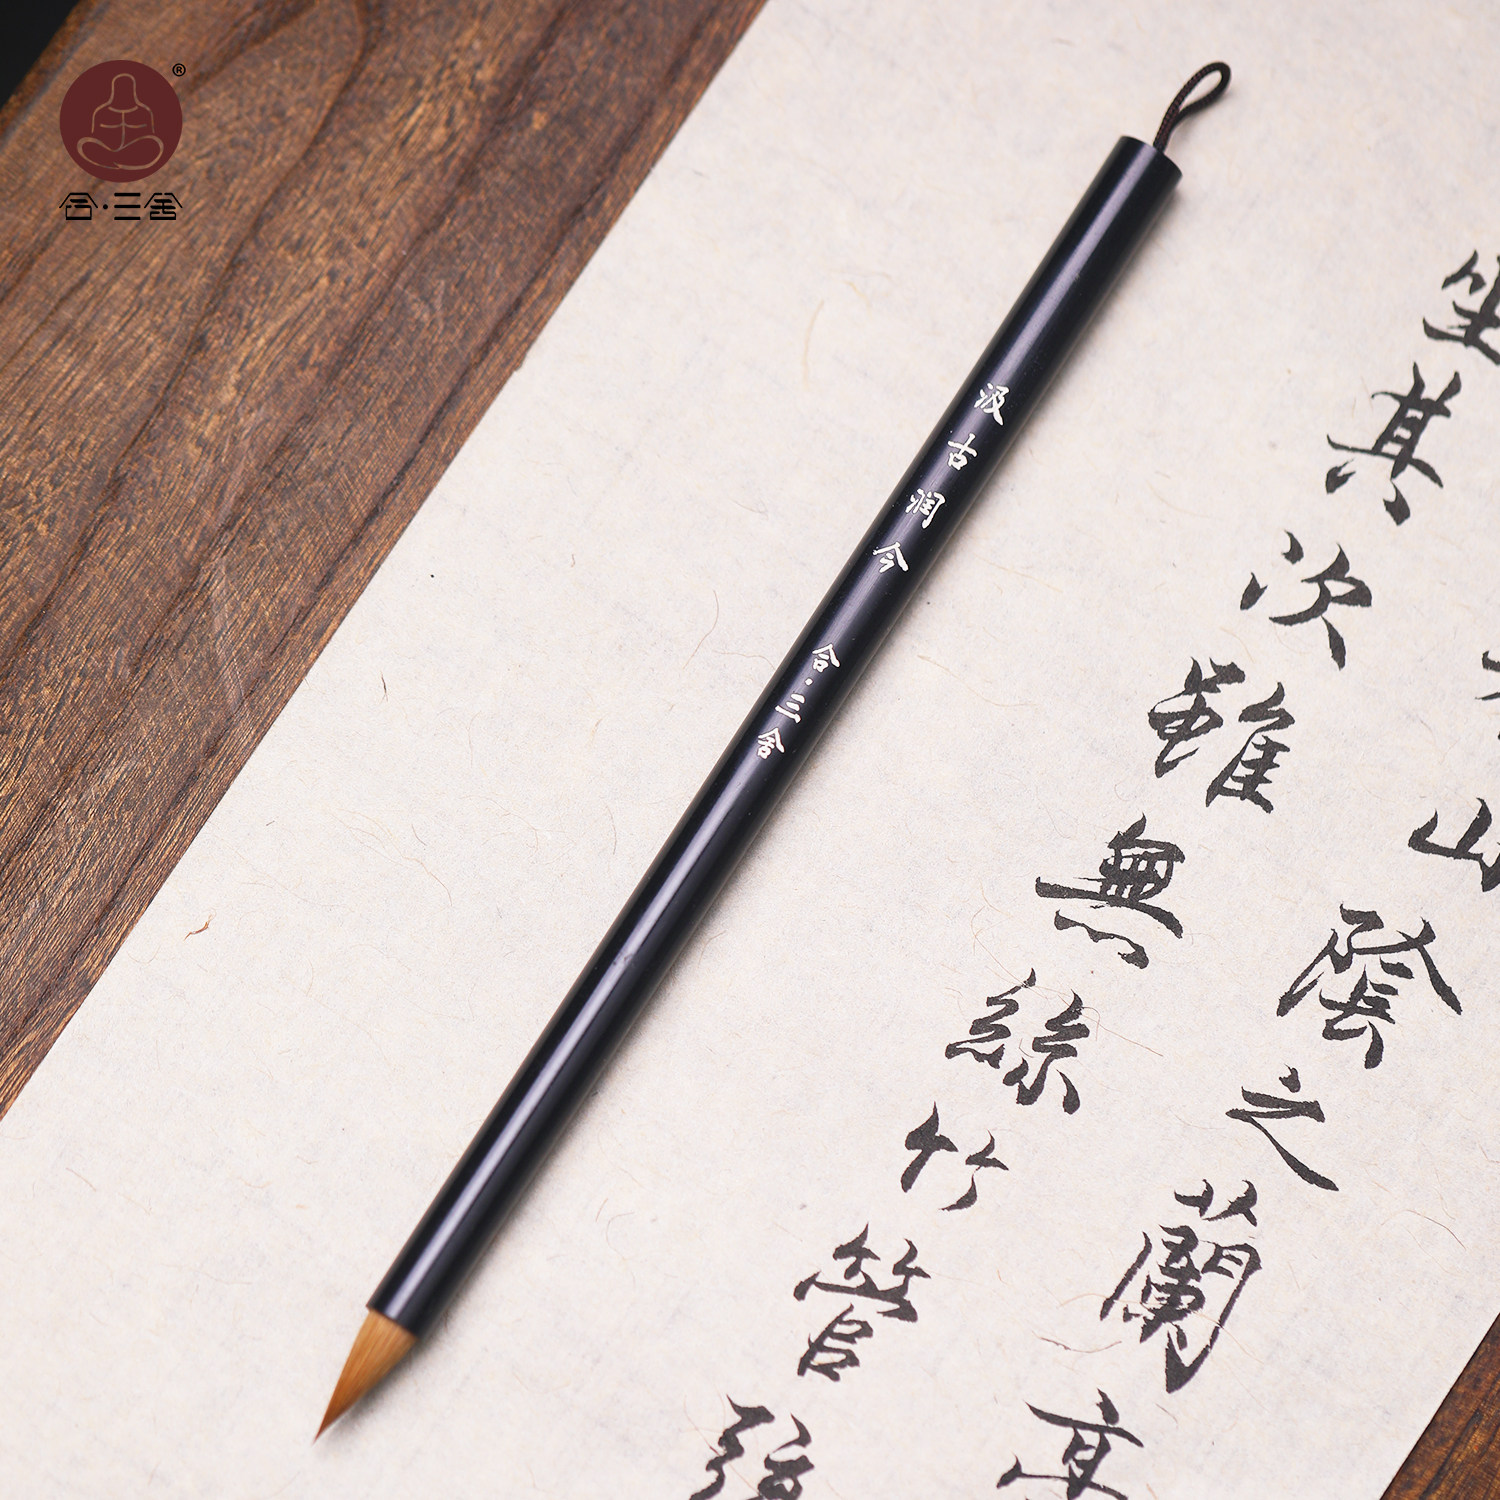 ®
合·三舍
汲古润今
合·三舍
山陰之蘭亭
坐其次雖無絲竹管弦